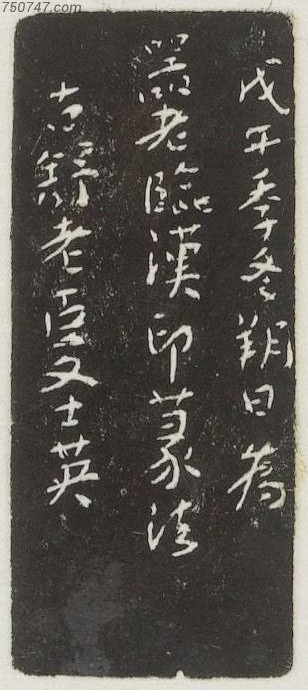 750747.com
戊午季冬朔日為
罍老臨漢印篆法
古舒老臣文士英